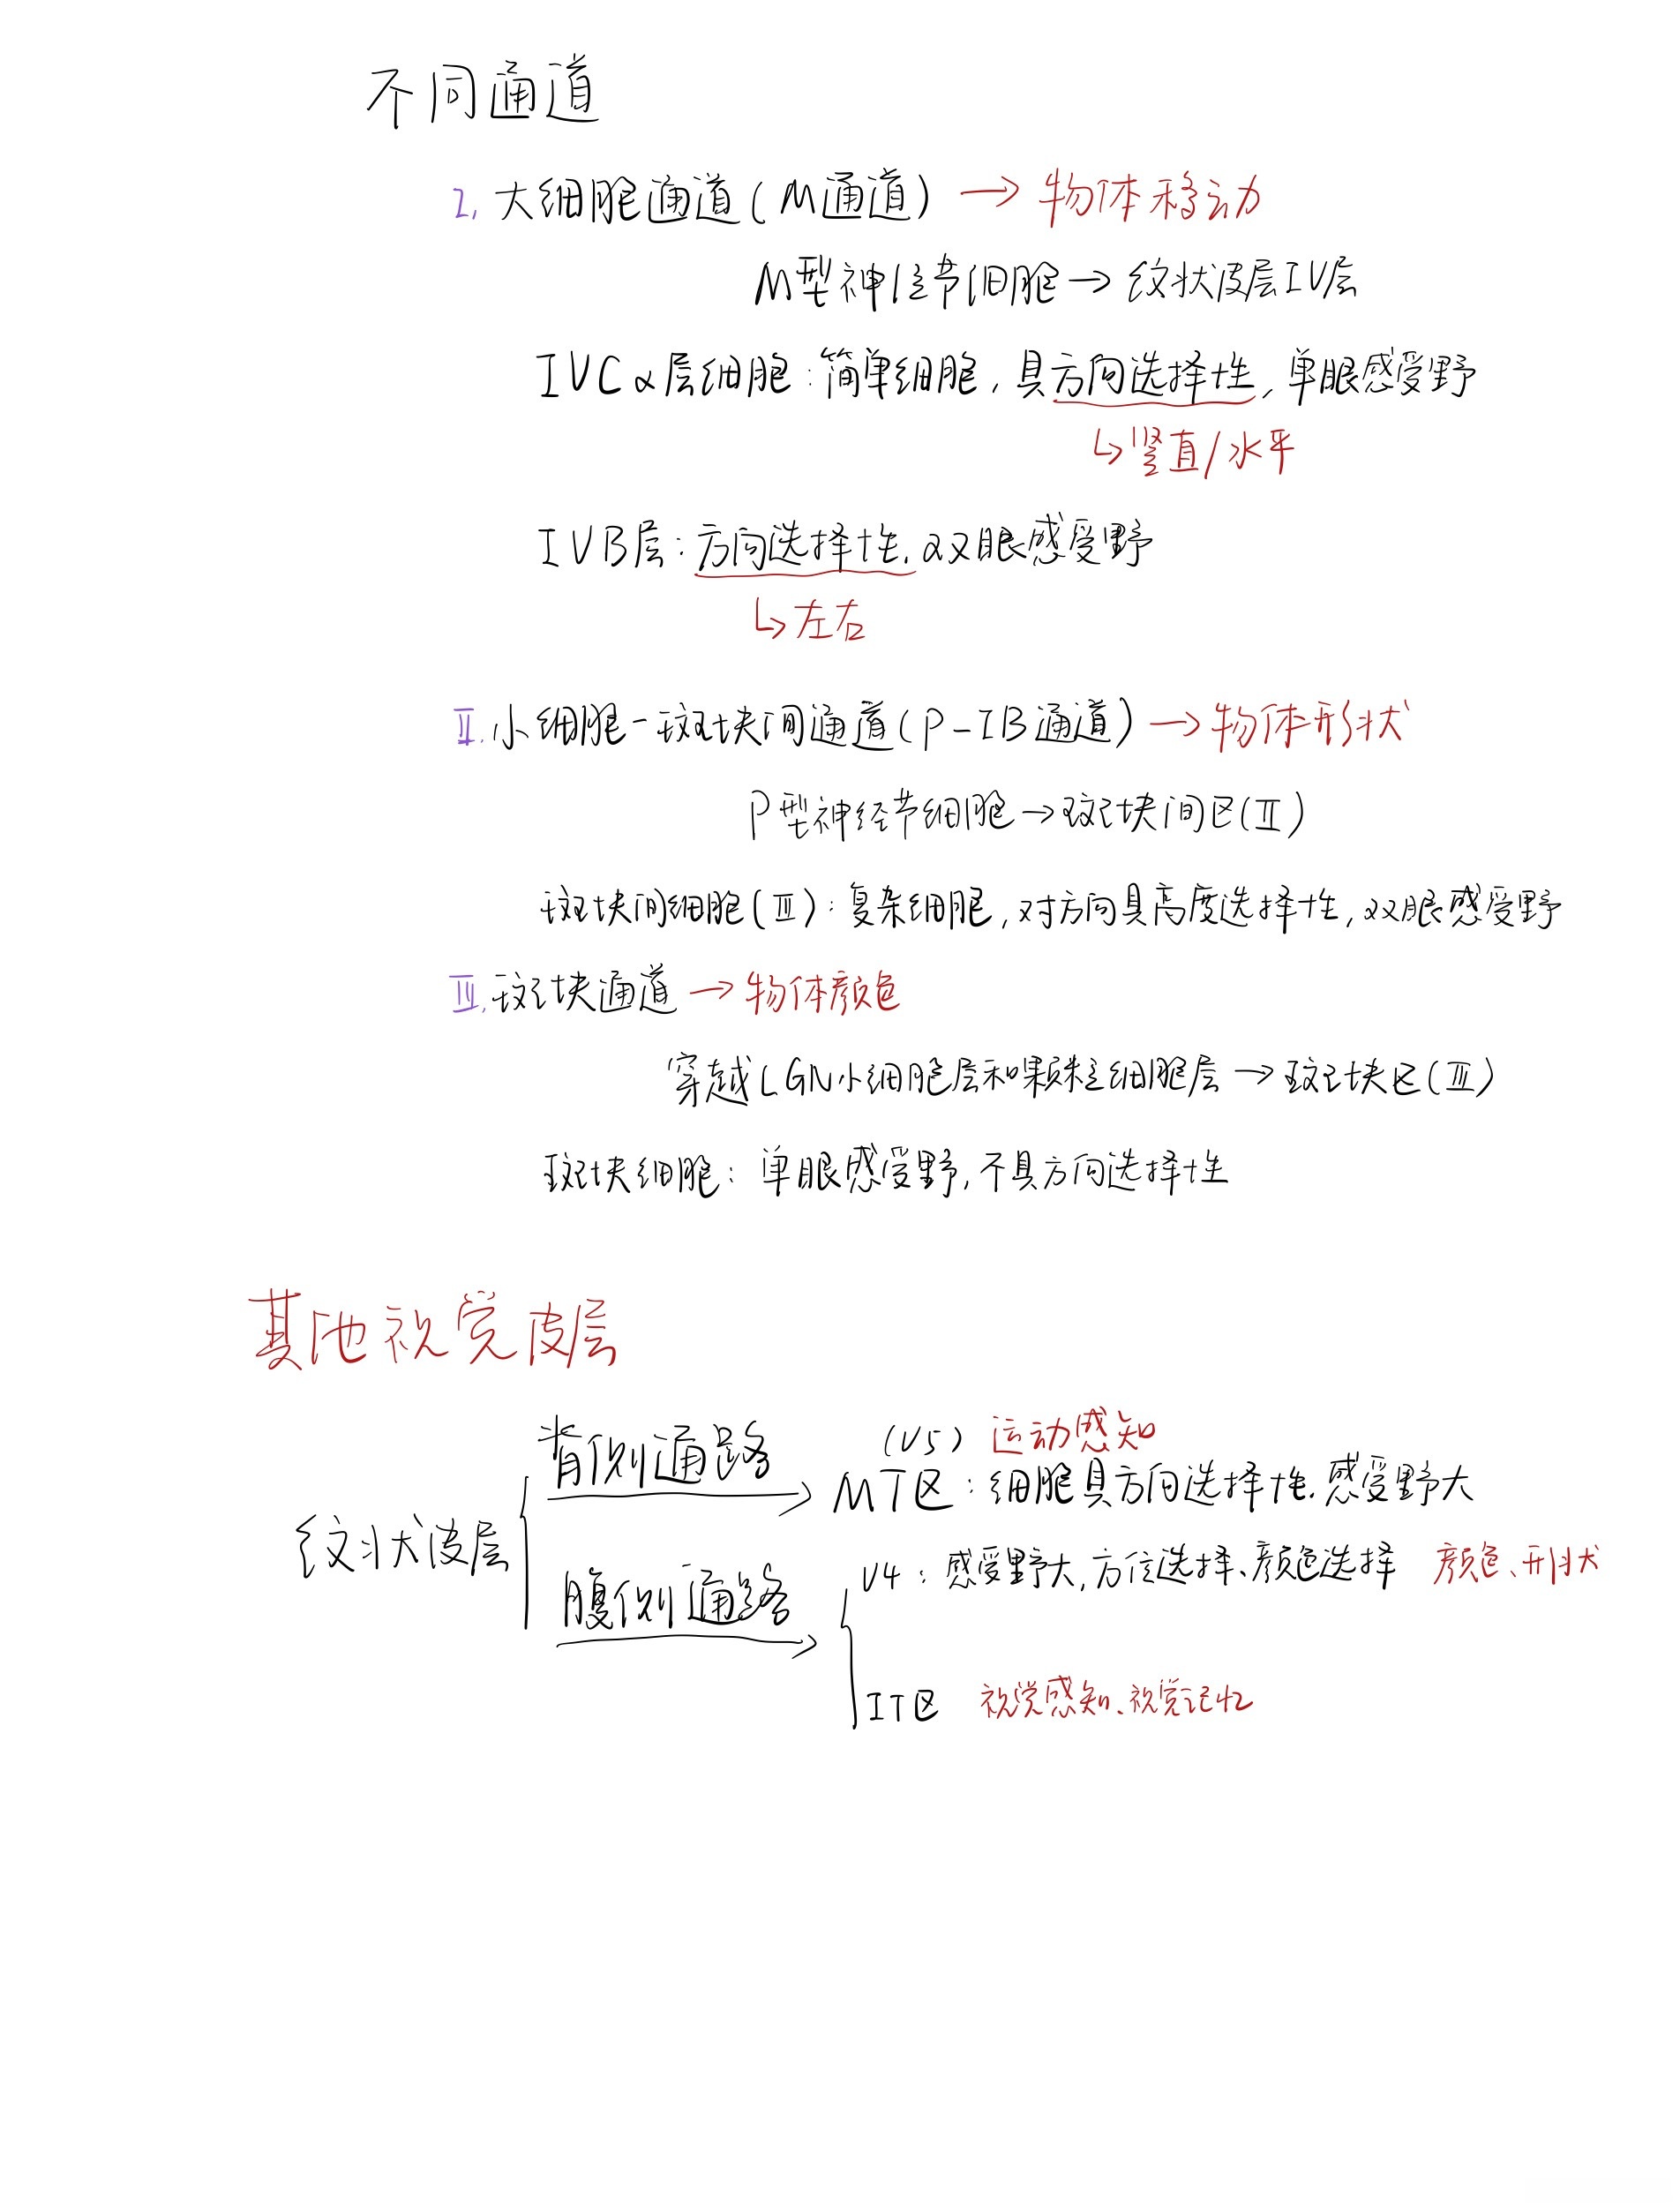 不同通道
I. 大细胞通道(M通道) → 物体移动
M型神经节细胞→纹状皮层IV层
IVCα层细胞:简单细胞,具方向选择性,单眼感受野
↳竖直/水平
IVB层:方向选择性.双眼感受野
↳左右
II.小细胞-斑块间通道(P-IB通道)→物体形状
P型神经节细胞→斑块间区(II)
斑块间细胞(III):复杂细胞,对方向具高度选择性,双眼感受野
III.斑块通道→物体颜色
穿越LGN小细胞层和颗粒细胞层→斑块区(III)
斑块细胞:单眼感受野,不具方向选择性
其他视觉皮层
纹状皮层
背侧通路
(V5) 运动感知
MT区:细胞具方向选择性.感受野大
腹侧通路
V4:感受野大,方位选择、颜色选择 颜色、形状
IT区 视觉感知、视觉记忆